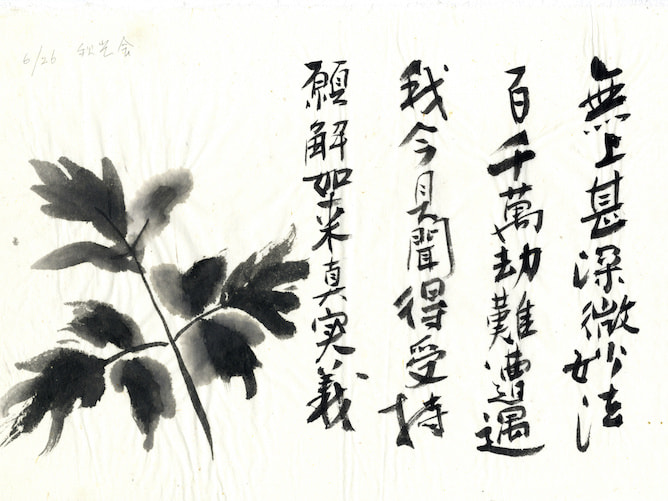 6/26 会
無上甚深微妙法
百千萬劫難遭遇
我今見聞得受持
願解如来真実義